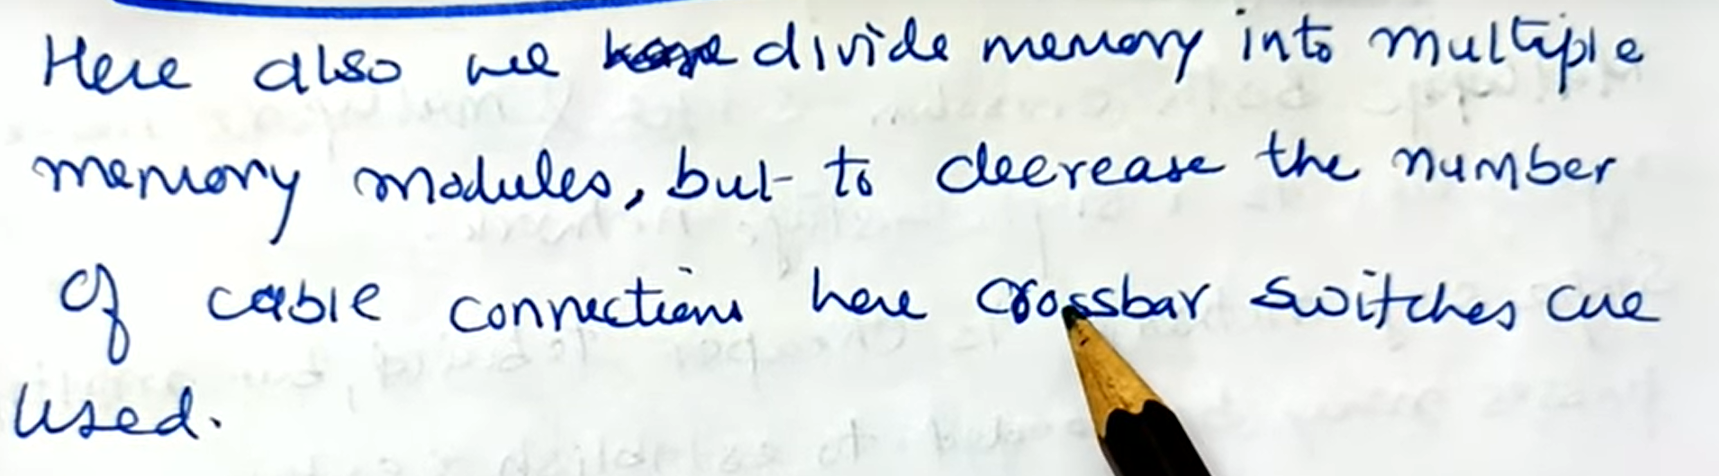 Here also we divide memory into multiple
memory modules, but to decrease the number
of cable connections here crossbar switches are
used.